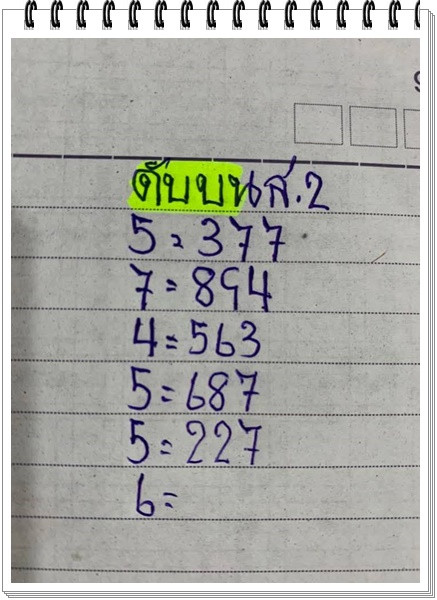 ดับบนส.2
5=377
7=894
4=563
5=687
5=227
6=